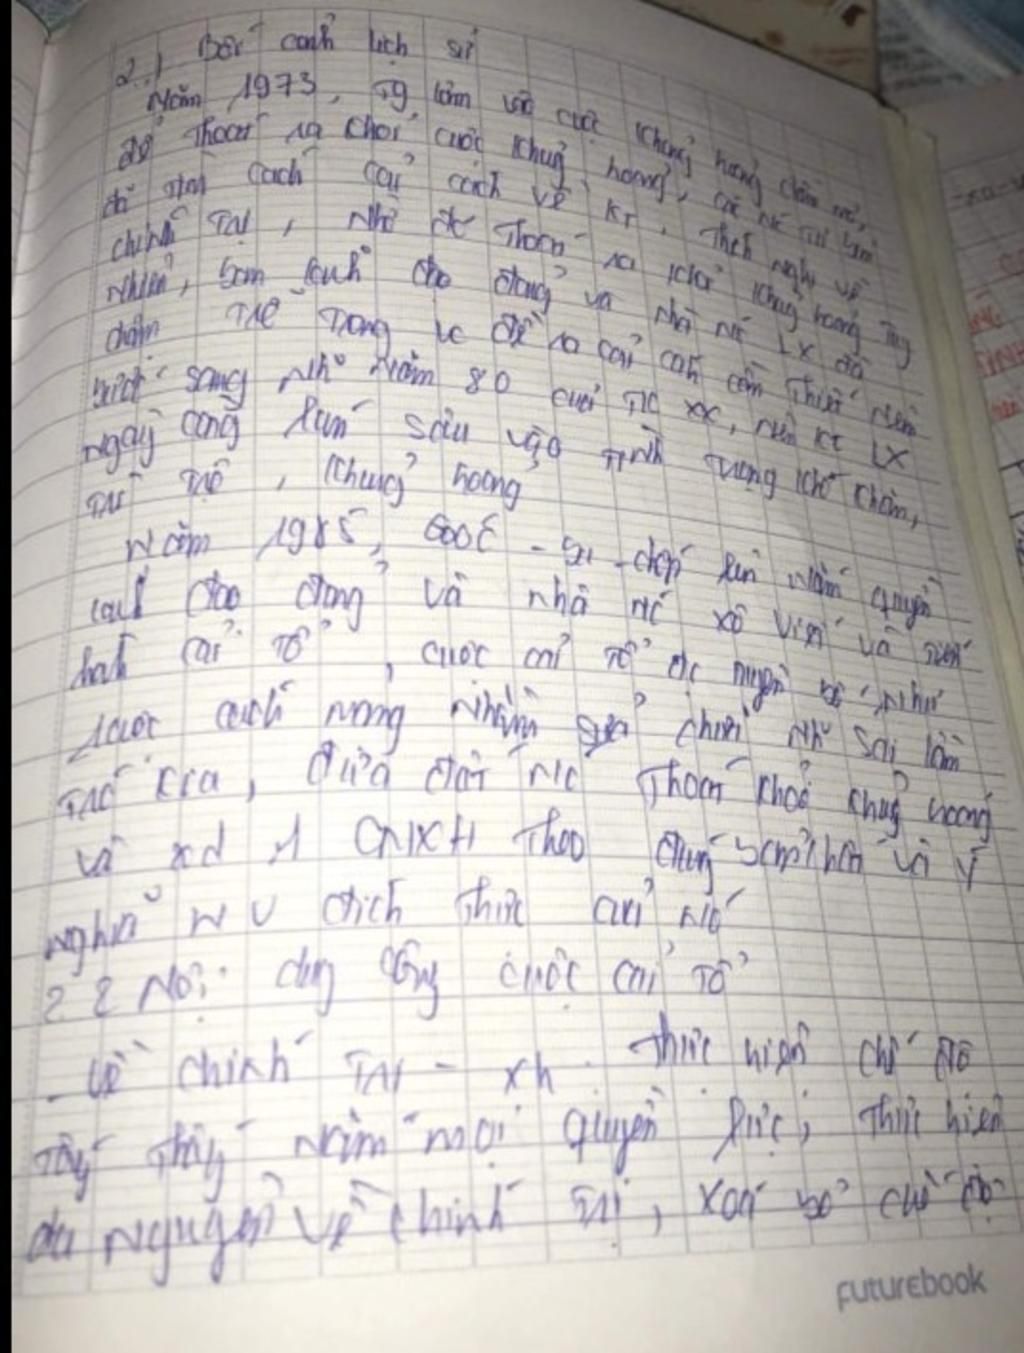 2.1 Bối cảnh lịch sử
Năm 1973, TG lâm vào cuộc khủng hoảng dầu mỏ,
để thoát ra khỏi cuộc khủg hoảng, các nc TB
đã tìm cách cải cách về KT, thích nghi về
chính trị, nhờ đó thoát ra khỏi khủg hoảng Tuy
nhiên, ban lãnh đạo đảng và nhà nc LX đã
chậm trễ trong vc đề ra cải cách cần thiết nên
sang nhữ năm 80 cuối TK XX, nền KT LX
ngày càng lún sâu vào tình trạng khó khăn,
trì trệ, khủg hoảng
Năm 1985, Goóc-ba-chốp lên nắm quyền
lãnh đạo đảng và nhà nc Xô Viết và tiến
hành cải tổ, cuộc cải tổ đc tuyên bố như
cuộc cách mạng nhằm sửa chữa nhữ sai lầm
trc kia, đưa đất nc thoát khỏi khủg hoảng
và xd 1 CNXH theo đúng bản chất và ý
nghĩa NV đích thực của nó
2 2 Nội dung công cuộc cải tổ
- Về chính trị - xh thực hiện chế độ
tổng thống nắm mọi quyền lực, thực hiện
đa nguyên về chính trị, xoá bỏ chế độ
Futurebook